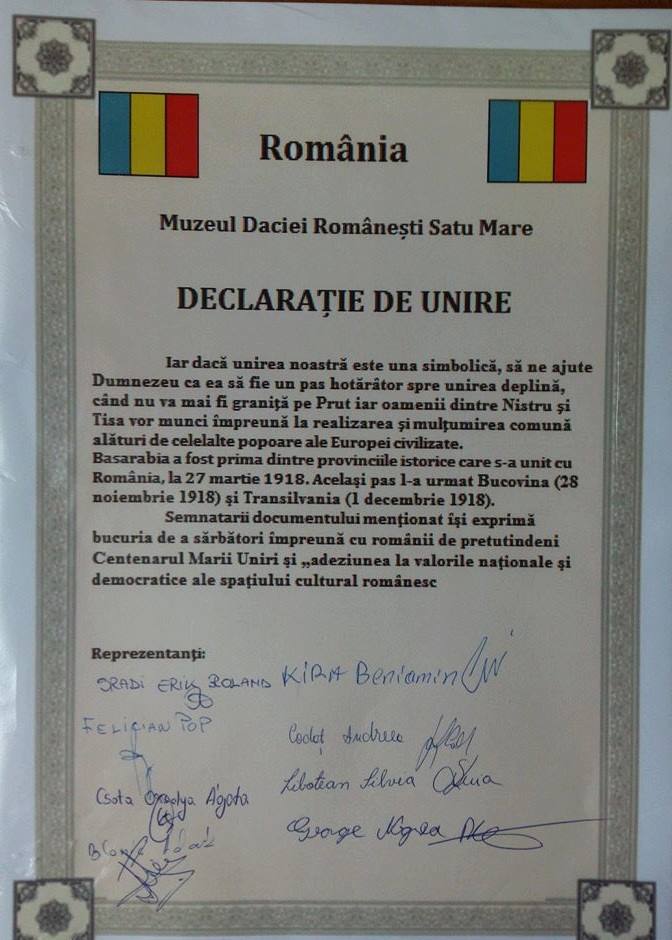 România
Muzeul Daciei Românești Satu Mare
DECLARAȚIE DE UNIRE
Iar dacă unirea noastră este una simbolică, să ne ajute
Dumnezeu ca ea să fie un pas hotărâtor spre unirea deplină,
când nu va mai fi graniță pe Prut iar oamenii dintre Nistru şi
Tisa vor munci împreună la realizarea şi mulțumirea comună
alături de celelalte popoare ale Europei civilizate.
Basarabia a fost prima dintre provinciile istorice care s-a unit cu
România, la 27 martie 1918. Acelaşi pas l-a urmat Bucovina (28
noiembrie 1918) şi Transilvania (1 decembrie 1918).
Semnatarii documentului menționat îşi exprimă
bucuria de a sărbători împreună cu românii de pretutindeni
Centenarul Marii Uniri şi „adeziunea la valorile naționale şi
democratice ale spațiului cultural românesc
Reprezentanți:
ERIK ROLAND KIRA Beniamin
FELICIAN POP
Codoț Andreea
Csota Orsolya Ágota
Silvia
George